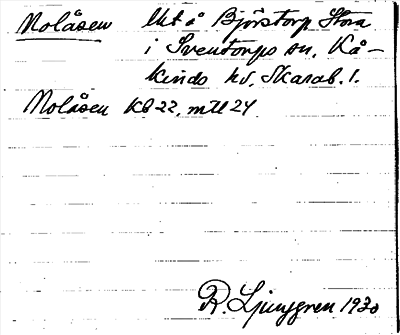 Nolåsen lht å Björstorp Stora
i Sventorps sn, Kå-
kinds hd, Skarab. l.
Nolåsen KB 22, mtl 24
R. Ljunggren 1930